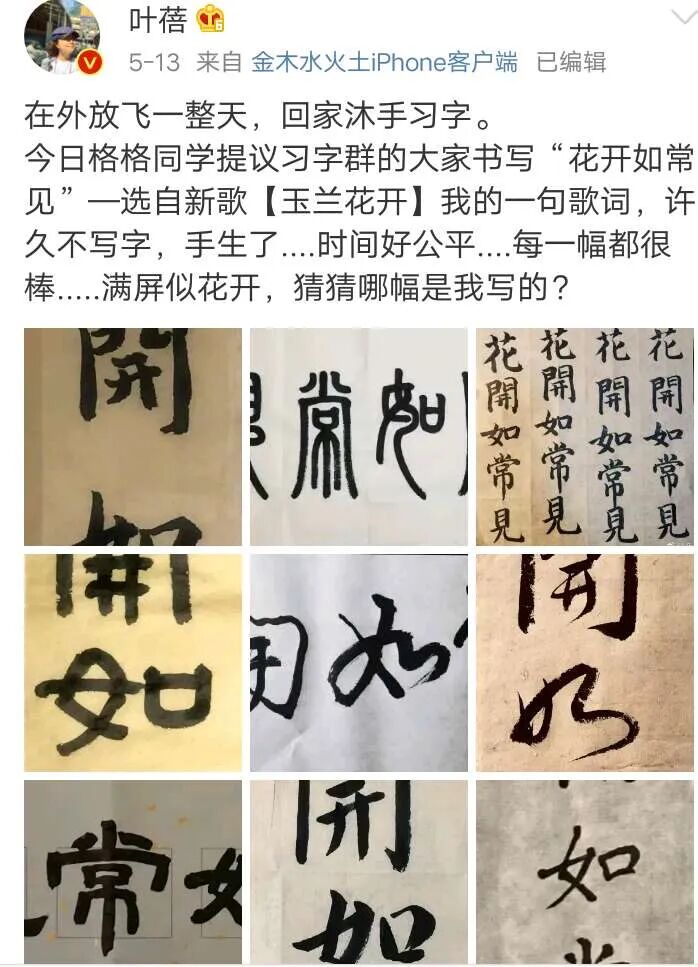 叶蓓
5-13 来自 金木水火土iPhone客户端 已编辑
在外放飞一整天，回家沐手习字。
今日格格同学提议习字群的大家书写“花开如常
见”—选自新歌【玉兰花开】我的一句歌词，许
久不写字，手生了....时间好公平....每一幅都很
棒.....满屏似花开，猜猜哪幅是我写的？
開
如
常如
花開如常見
花開如常見
花開如常見
花開如常見
開
如
開如
開
如
常如
開
如
如
常